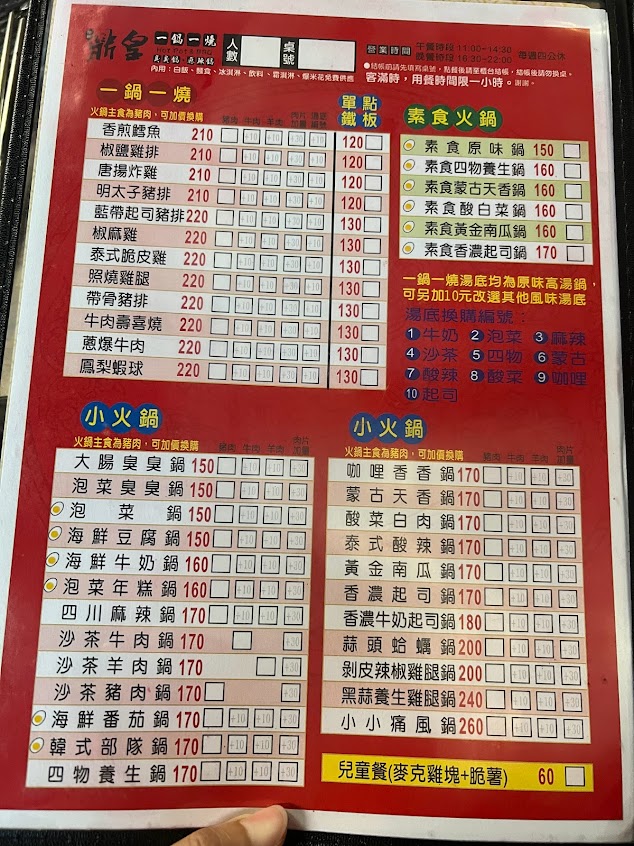 鼎皇 一鍋一燒
Hot Pot & BBQ
臭臭鍋．麻辣鍋
人數
桌號
營業時間 午餐時段 11:00-14:30
晚餐時段 16:30-22:00 每週四公休
●結帳前請先填寫桌號，點餐後請至櫃台結帳，結帳後請勿換桌。
內用：白飯、麵食、冰淇淋、飲料、霜淇淋、爆米花免費供應
客滿時，用餐時間限一小時。謝謝。
一鍋一燒
火鍋主食為豬肉，可加價換購
豬肉 牛肉 羊肉 肉片加量 湯底編號
單點鐵板
香煎鱈魚 210 +10 +10 +30 +10 120
椒鹽雞排 210 +10 +10 +30 +10 120
唐揚炸雞 210 +10 +10 +30 +10 120
明太子豬排 210 +10 +10 +30 +10 120
藍帶起司豬排 220 +10 +10 +30 +10 130
椒麻雞 220 +10 +10 +30 +10 130
泰式脆皮雞 220 +10 +10 +30 +10 130
照燒雞腿 220 +10 +10 +30 +10 130
帶骨豬排 220 +10 +10 +30 +10 130
牛肉壽喜燒 220 +10 +10 +30 +10 130
蔥爆牛肉 220 +10 +10 +30 +10 130
鳳梨蝦球 220 +10 +10 +30 +10 130
素食火鍋
素食原味鍋 150
素食四物養生鍋 160
素食蒙古天香鍋 160
素食酸白菜鍋 160
素食黃金南瓜鍋 160
素食香濃起司鍋 170
一鍋一燒湯底均為原味高湯鍋，
可另加10元改選其他風味湯底
湯底換購編號：
1牛奶 2泡菜 3麻辣
4沙茶 5四物 6蒙古
7酸辣 8酸菜 9咖哩
10起司
小火鍋
火鍋主食為豬肉，可加價換購
豬肉 牛肉 羊肉 肉片加量
大腸臭臭鍋 150 +10 +10 +30
泡菜臭臭鍋 150 +10 +10 +30
泡菜鍋 150 +10 +10 +30
海鮮豆腐鍋 150 +10 +10 +30
海鮮牛奶鍋 160 +10 +10 +30
泡菜年糕鍋 160 +10 +10 +30
四川麻辣鍋 170 +10 +10 +30
沙茶牛肉鍋 170 +30
沙茶羊肉鍋 170 +30
沙茶豬肉鍋 170 +30
海鮮番茄鍋 170 +10 +10 +30
韓式部隊鍋 170 +10 +10 +30
四物養生鍋 170 +10 +10 +30
小火鍋
火鍋主食為豬肉，可加價換購
豬肉 牛肉 羊肉 肉片加量
咖哩香香鍋 170 +10 +10 +30
蒙古天香鍋 170 +10 +10 +30
酸菜白肉鍋 170 +10 +10 +30
泰式酸辣鍋 170 +10 +10 +30
黃金南瓜鍋 170 +10 +10 +30
香濃起司鍋 170 +10 +10 +30
香濃牛奶起司鍋 180 +10 +10 +30
蒜頭蛤蠣鍋 200 +10 +10 +30
剝皮辣椒雞腿鍋 200 +10 +10 +30
黑蒜養生雞腿鍋 240 +10 +10 +30
小小痛風鍋 260 +10 +10 +30
兒童餐(麥克雞塊+脆薯) 60